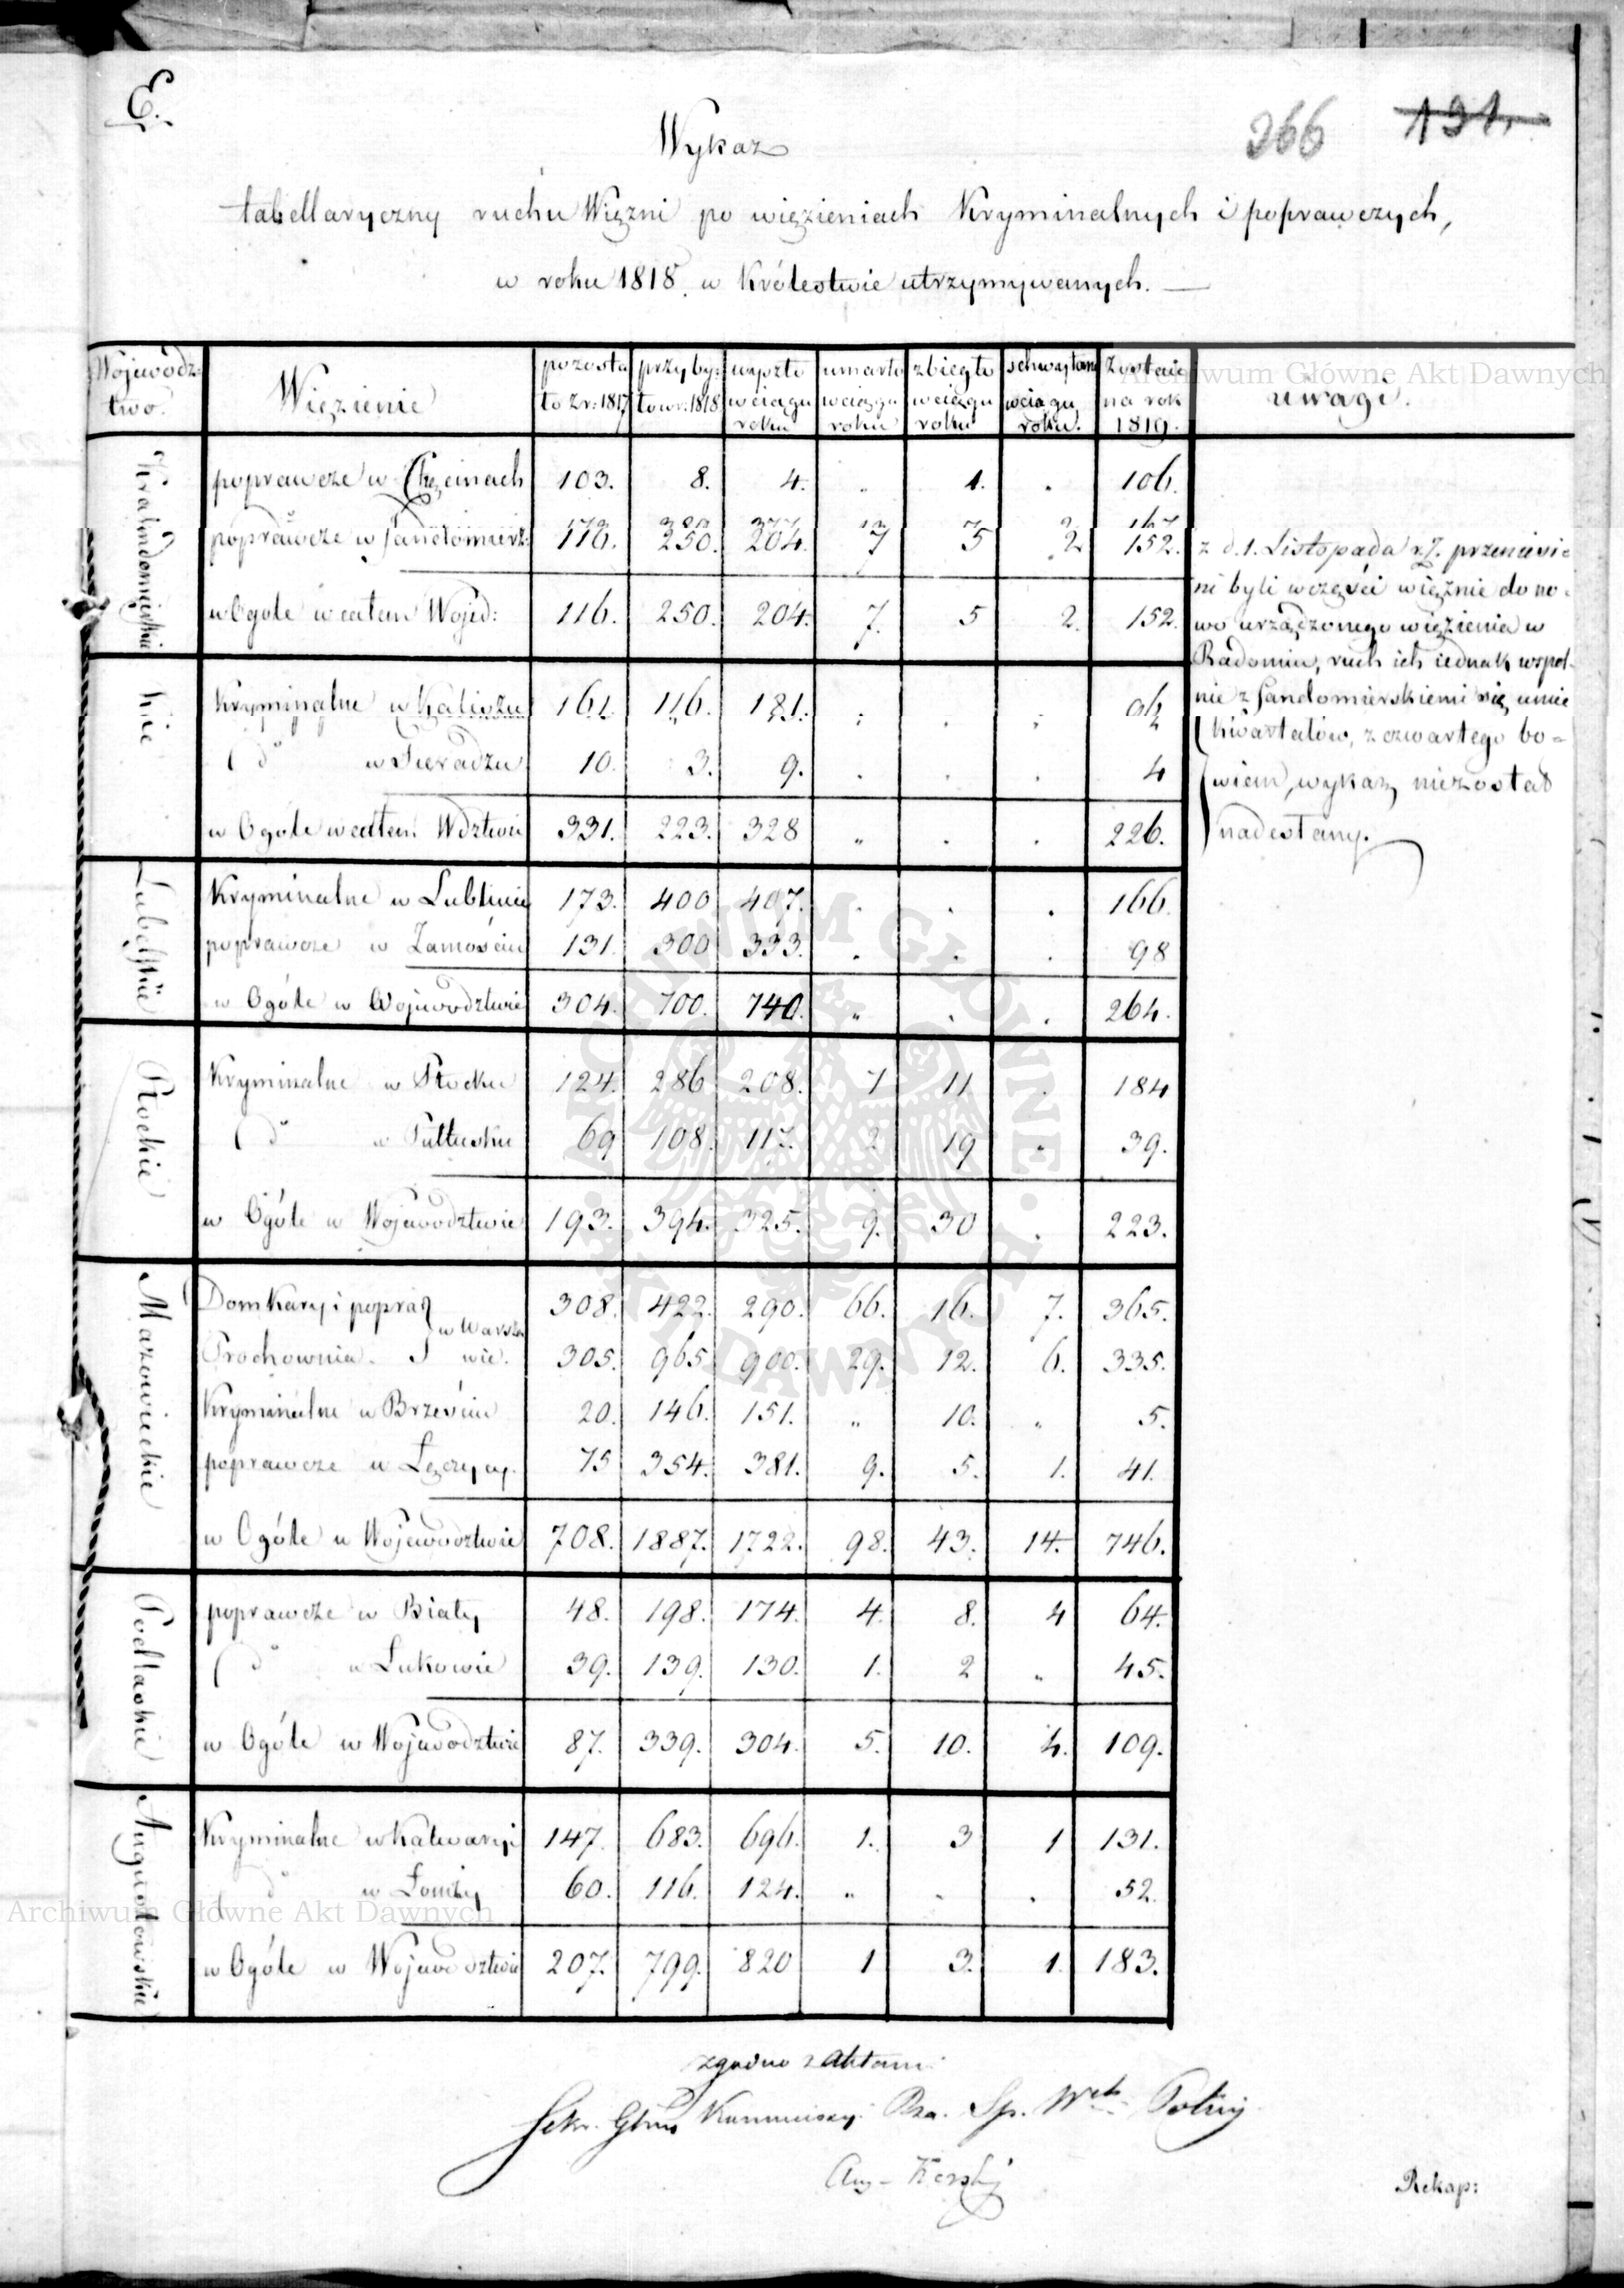 E.
366 131.
Wykaz
tabellaryczny ruchu Więzni po więzieniach Kryminalnych i poprawczych,
w roku 1818. w Królestwie utrzymywanych. —
Wojewódz:two. Więzienie pozosta:ło z r: 1817 przyby:ło w r: 1818 wyszło w ciągu roku umarło w ciągu roku zbiegło w ciągu roku schwytano w ciągu roku. Zostaie na rok 1819. uwagi.
poprawcze w Chęcinach 103. 8. 4. . 1. . 106.
poprawcze w Sandomierz: 116. 250. 204. 7 5 2 152.
w Ogole w całem Wojed: 116. 250. 204. 7. 5 2. 152.
z d. 1. Listopada r. z. przeniesie=
ni byli w części więznie do no=
wo urządzonego więzienia w
Radomiu, ruch ich iednak wspol=
nie z Sandomierskiemi się umie
kwartałów, z czwartego bo=
wiem, wykaz niezostał
nadesłany.
kie
Kryminalne w Kaliszu 161. 116. 181. . . .
do w Sieradzu 10. 3. 9. . . . 4
w Ogole w całem Wdztwie 331. 223. 328 " . . 226.
Lubelskie
Kryminalne w Lublinie 173. 400 407. . . . 166.
poprawcze w Zamościu 131. 300 333. . . . 98
w Ogóle w Wojewodztwie 304. 700. 740. " . . 264.
Płockie
Kryminalne w Płocku 124. 286 208. 7 11 . 184
do w Pułtusku 69 108. 117. 2 19 . 39.
w Ogóle w Wojewodztwie 193. 394. 325. 9. 30 . 223.
Mazowieckie
Dom Kary i popraw 308. 422. 290. 66. 16. 7. 365.
w Warsza
Prochownia. wie. 305. 965 900. 29. 12. 6. 335.
Kryminalne w Brześciu 20. 146. 151. " 10. " 5.
poprawcze w Łęczycy. 75 354. 381. 9. 5. 1. 41.
w Ogóle w Wojewodztwie 708. 1887. 1722. 98. 43. 14. 746.
Podlaskie
poprawcze w Biały 48. 198. 174. 4. 8. 4 64.
do w Łukowie 39. 139. 130. 1. 2 " 45.
w Ogóle w Wojewodztwie 87. 339. 304. 5. 10. 4. 109.
Augustowskie
Kryminalne w Kalwaryi 147. 683. 696. 1. 3 1 131.
do w Łomży 60. 116. 124. " . . 52.
w Ogóle w Wojewodztwie 207. 799. 820 1 3. 1. 183.
zgodno z Aktami
Sekr. Kommissyi Rza. Sp. Wch Policyi
Rekap:
Archiwum Główne Akt Dawnych
Archiwum Główne Akt Dawnych
ARCHIWUM GŁÓWNE AKT DAWNYCH